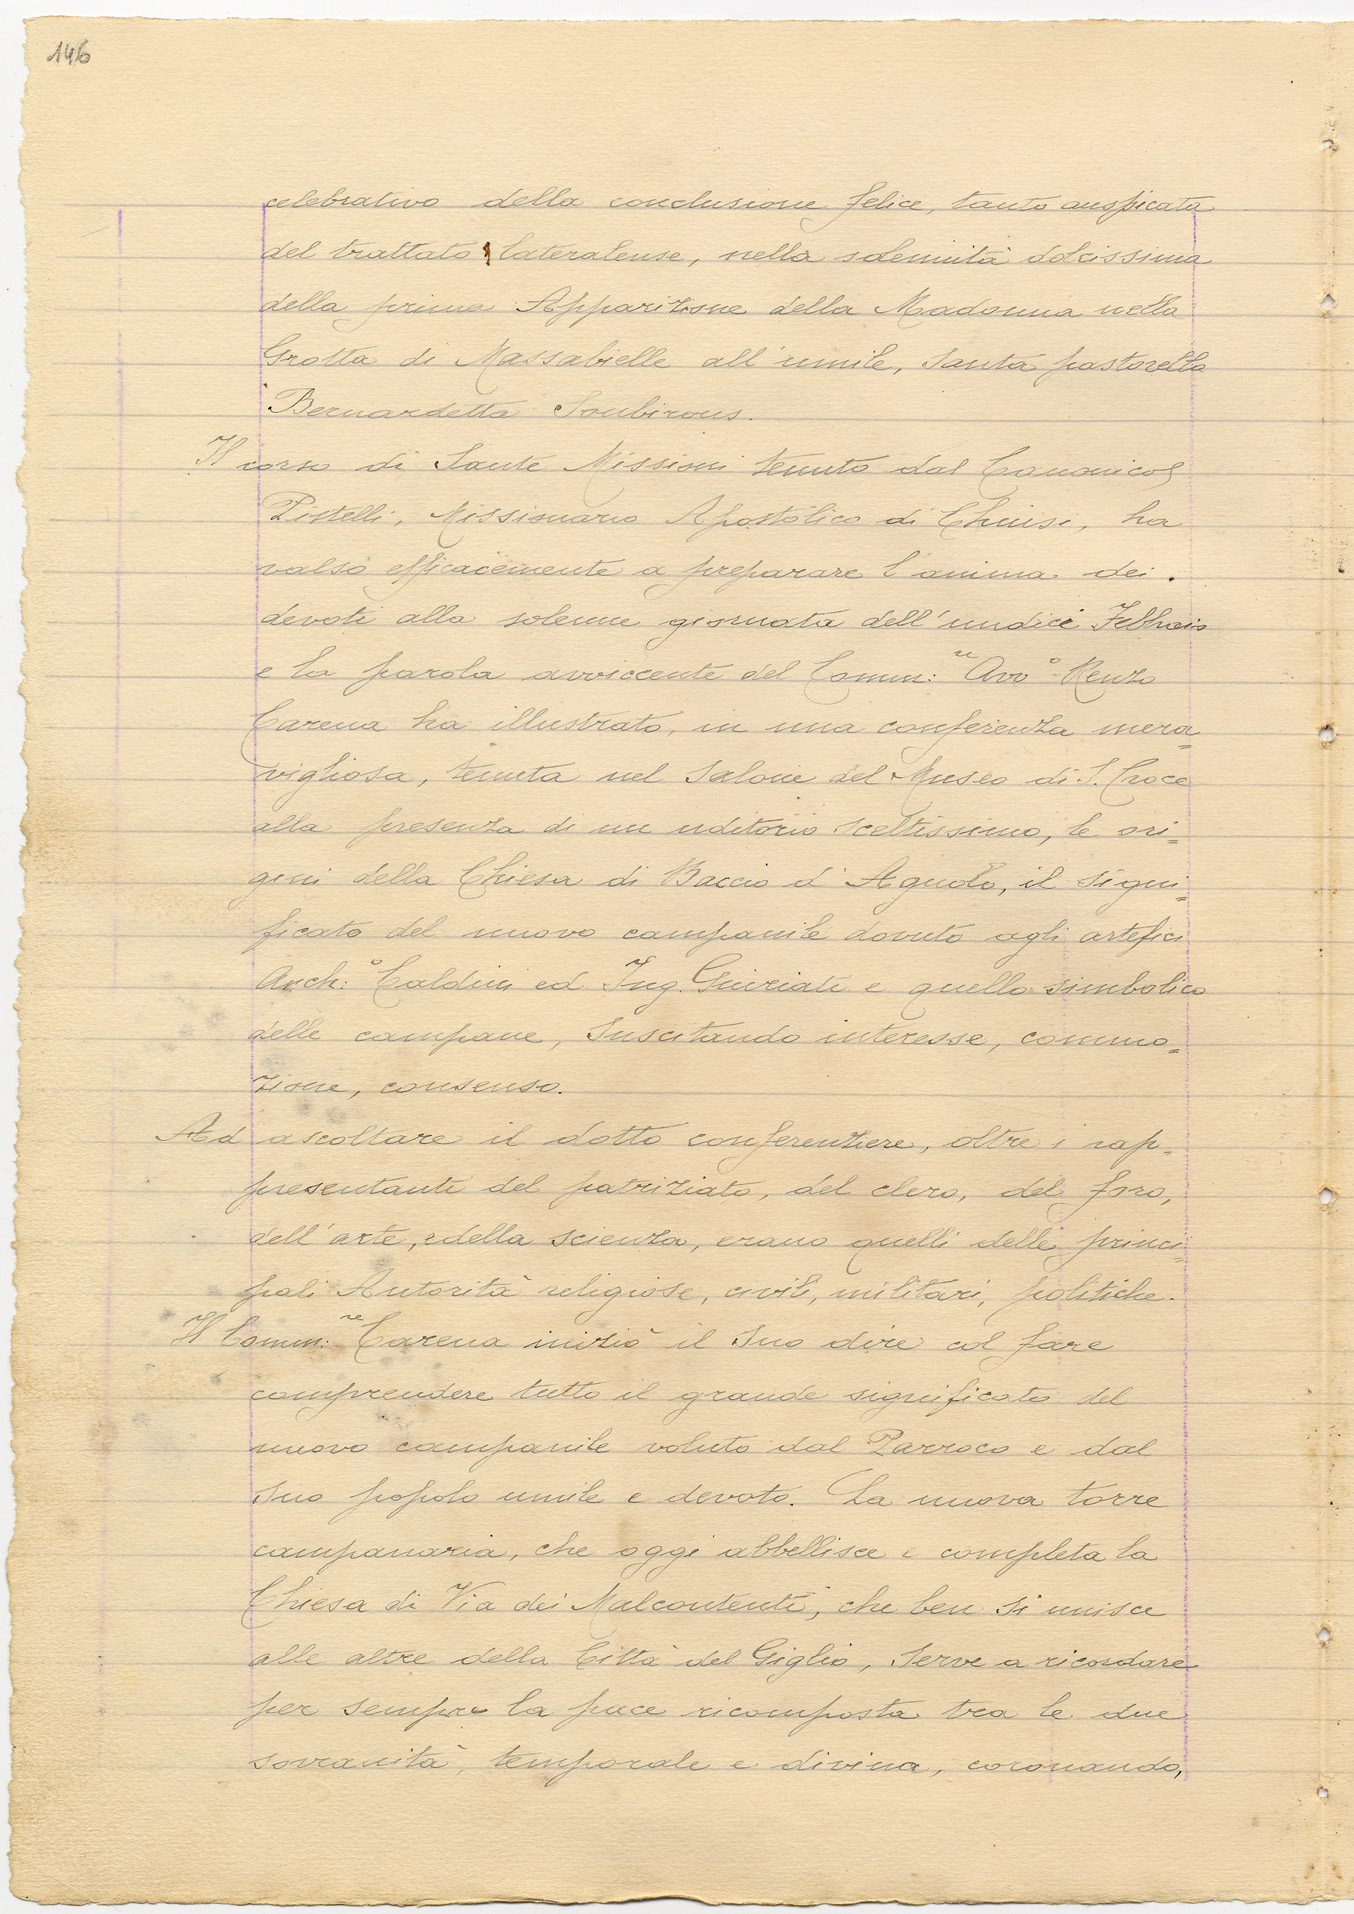 146
celebrativo della conclusione felice, tanto auspicata
del trattato lateralense, nella solennità dolcissima
della prima Apparizione della Madonna nella
Grotta di Massabielle all'umile, Santa pastorella
Bernardetta Soubirous.
Il corso di Sante Missioni tenuto dal Canonico
Pistelli, Missionario Apostolico di Chiusi, ha
valso efficacemente a preparare l'anima dei
devoti alla solenne giornata dell'undici Febbraio
e la parola avvincente del Comm:re Avvo Renzo
Carena ha illustrato, in una conferenza mera=
vigliosa, tenuta nel Salone del Museo di S. Croce
alla presenza di un uditorio sceltissimo, le ori=
gini della Chiesa di Baccio d'Agnolo, il signi=
ficato del nuovo campanile dovuto agli artefici
Arch:o Caldini ed Ing. Giuriati e quello simbolico
delle campane, suscitando interesse, commo=
zione, consenso.
Ad ascoltare il dotto conferenziere, oltre i rap=
presentanti del patriziato, del clero, del foro,
dell'arte, e della scienza, erano quelli delle princi=
pali Autorità religiose, civili, militari, politiche.
Il Comm:re Carena iniziò il Suo dire col fare
comprendere tutto il grande significato del
nuovo campanile voluto dal Parroco e dal
suo popolo umile e devoto. La nuova torre
campanaria, che oggi abbellisce e completa la
Chiesa di Via dei Malcontenti, che ben si unisce
alle altre della Città del Giglio, serve a ricordare
per sempre la pace ricomposta tra le due
sovranità, temporale e divina, coronando,